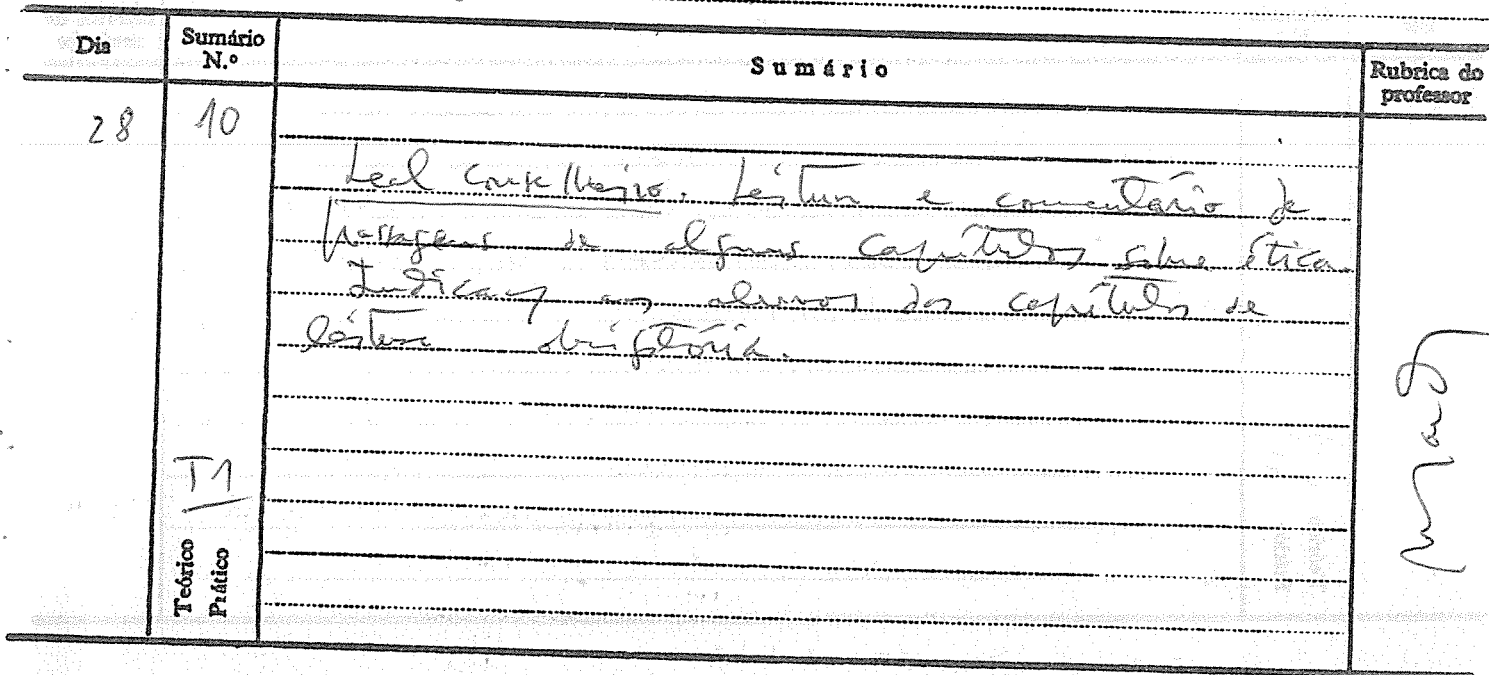 Dia
Sumário N.º
Sumário
Rubrica do professor
28
10
Leal Conselheiro. Leitura e comentário de
passagens de alguns capítulos sobre ética.
Indicação aos alunos dos capítulos de
leitura obrigatória.
T1
Teórico
Prático